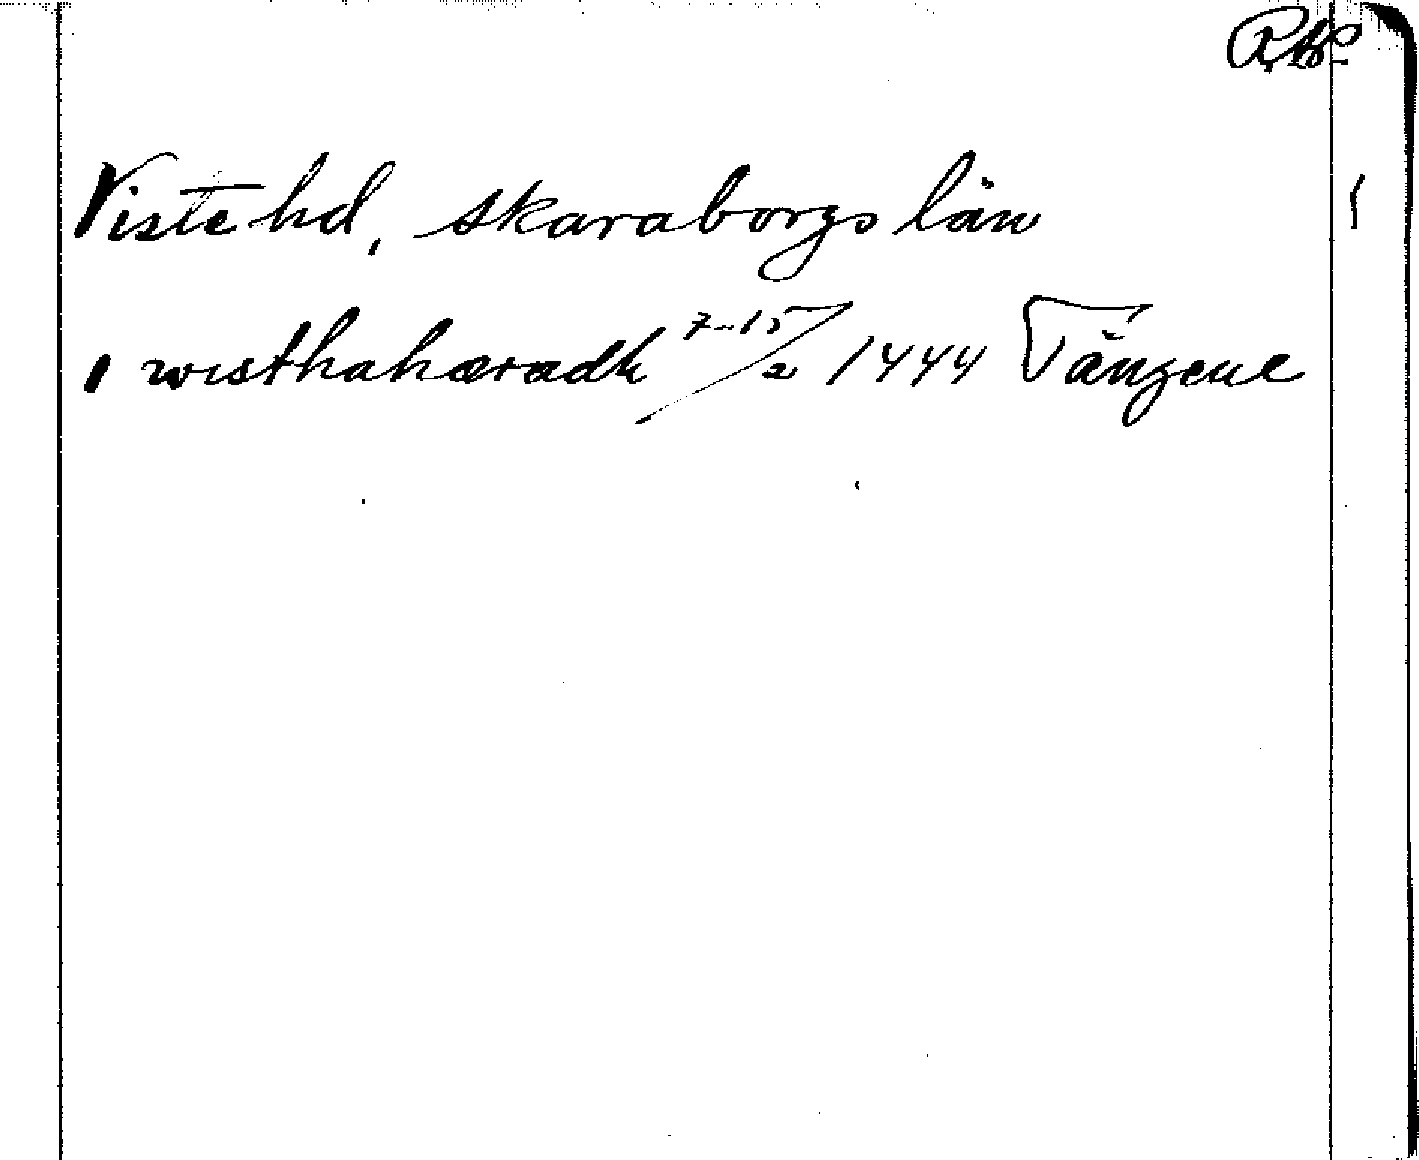 Viste hd, Skaraborgs län
ı wısthahæradh 7-15/2 1444 Tängene